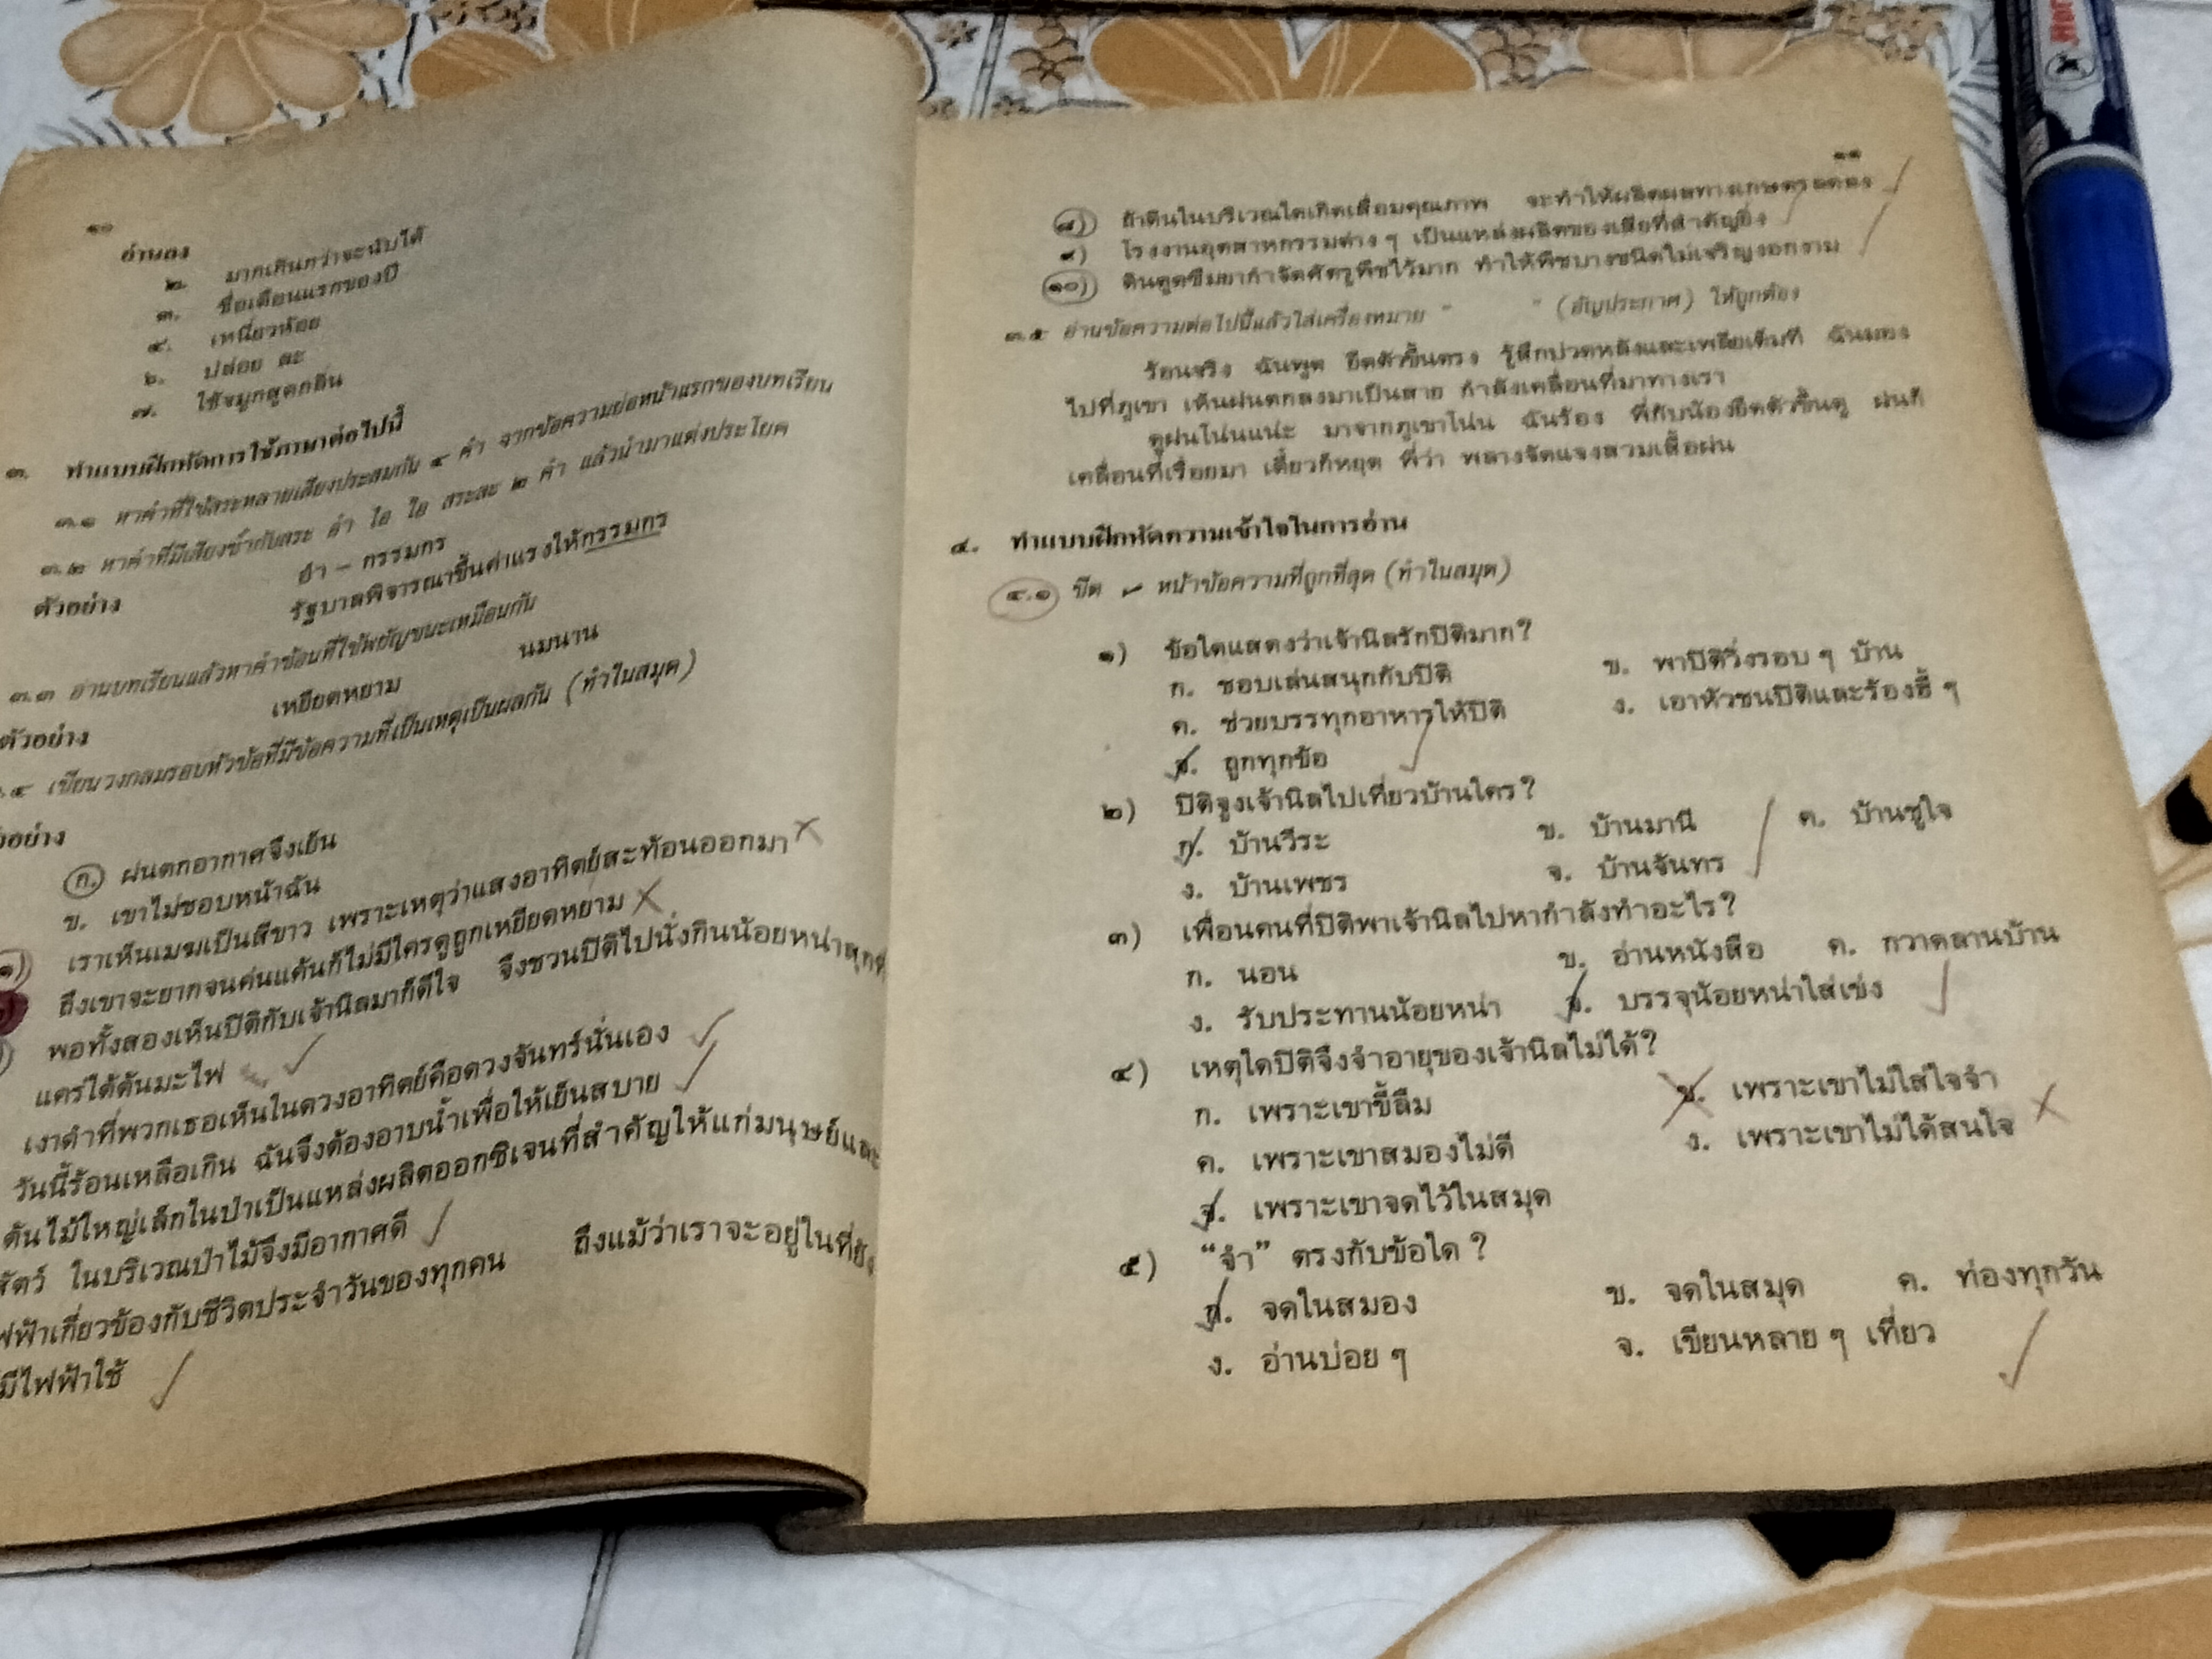 ๑๐
อำนอง
๒. มากเกินกว่าจะนับได้
๓. ชื่อเดือนแรกของปี
๔. เหนี่ยวห้อย
๖. ปล่อย ละ
๗. ใช้จมูกสูดกลิ่น
๓. ทำแบบฝึกหัดการใช้ภาษาต่อไปนี้
๓.๑ หาคำที่ใช้สระหลายเสียงประสมกัน ๔ คำ จากข้อความย่อหน้าแรกของบทเรียน
๓.๒ หาคำที่มีเสียงซ้ำกับสระ อำ ไอ ใอ สระละ ๒ คำ แล้วนำมาแต่งประโยค
ตัวอย่าง อำ - กรรมกร
รัฐบาลพิจารณาขึ้นค่าแรงให้กรรมกร
๓.๓ อ่านบทเรียนแล้วหาคำซ้อนที่ใช้พยัญชนะเหมือนกัน
ตัวอย่าง เหยียดหยาม นมนาน
.๔ เขียนวงกลมรอบหัวข้อที่มีข้อความที่เป็นเหตุเป็นผลกัน (ทำในสมุด)
อย่าง
ก. ฝนตกอากาศจึงเย็น
ข. เขาไม่ชอบหน้าฉัน
๑) เราเห็นเมฆเป็นสีขาว เพราะเหตุว่าแสงอาทิตย์สะท้อนออกมา
ถึงเขาจะยากจนค่นแค้นก็ไม่มีใครดูถูกเหยียดหยาม
พอทั้งสองเห็นปิติกับเจ้านิลมาก็ดีใจ จึงชวนปิติไปนั่งกินน้อยหน่าสุก
แคร่ใต้ต้นมะไฟ
เงาดำที่พวกเธอเห็นในดวงอาทิตย์คือดวงจันทร์นั่นเอง
วันนี้ร้อนเหลือเกิน ฉันจึงต้องอาบน้ำเพื่อให้เย็นสบาย
ต้นไม้ใหญ่เล็กในป่าเป็นแหล่งผลิตออกซิเจนที่สำคัญให้แก่มนุษย์และ
สัตว์ ในบริเวณป่าไม้จึงมีอากาศดี
ฟฟ้าเกี่ยวข้องกับชีวิตประจำวันของทุกคน ถึงแม้ว่าเราจะอยู่ในที่ยัง
มีไฟฟ้าใช้
๑๑
๘) ถ้าดินในบริเวณใดเกิดเสื่อมคุณภาพ จะทำให้ผลิตผลทางเกษตรลดลง
๙) โรงงานอุตสาหกรรมต่าง ๆ เป็นแหล่งผลิตของเสียที่สำคัญยิ่ง
๑๐) ดินดูดซึมยากำจัดศัตรูพืชไว้มาก ทำให้พืชบางชนิดไม่เจริญงอกงาม
๓.๕ อ่านข้อความต่อไปนี้แล้วใส่เครื่องหมาย " " (อัญประกาศ) ให้ถูกต้อง
ร้อนจริง ฉันพูด ยืดตัวขึ้นตรง รู้สึกปวดหลังและเพลียเต็มที ฉันมอง
ไปที่ภูเขา เห็นฝนตกลงมาเป็นสาย กำลังเคลื่อนที่มาทางเรา
ดูฝนโน่นแน่ะ มาจากภูเขาโน่น ฉันร้อง พี่กับน้องยืดตัวขึ้นดู ฝนก็
เคลื่อนที่เรื่อยมา เดี๋ยวก็หยุด พี่ว่า พลางจัดแจงสวมเสื้อฝน
๔. ทำแบบฝึกหัดความเข้าใจในการอ่าน
๔.๑ ขีด ✓ หน้าข้อความที่ถูกที่สุด (ทำในสมุด)
๑) ข้อใดแสดงว่าเจ้านิลรักปิติมาก?
ก. ชอบเล่นสนุกกับปิติ ข. พาปิติวิ่งรอบ ๆ บ้าน
ค. ช่วยบรรทุกอาหารให้ปิติ ง. เอาหัวชนปิติและร้องฮี้ ๆ
จ. ถูกทุกข้อ
๒) ปิติจูงเจ้านิลไปเที่ยวบ้านใคร?
ก. บ้านวีระ ข. บ้านมานี ค. บ้านชูใจ
ง. บ้านเพชร จ. บ้านจันทร
๓) เพื่อนคนที่ปิติพาเจ้านิลไปหากำลังทำอะไร?
ก. นอน ข. อ่านหนังสือ ค. กวาดลานบ้าน
ง. รับประทานน้อยหน่า จ. บรรจุน้อยหน่าใส่เข่ง
๔) เหตุใดปิติจึงจำอายุของเจ้านิลไม่ได้?
ก. เพราะเขาขี้ลืม ข. เพราะเขาไม่ใส่ใจจำ
ค. เพราะเขาสมองไม่ดี ง. เพราะเขาไม่ได้สนใจ
จ. เพราะเขาจดไว้ในสมุด
๕) “จำ” ตรงกับข้อใด ?
ก. จดในสมอง ข. จดในสมุด ค. ท่องทุกวัน
ง. อ่านบ่อย ๆ จ. เขียนหลาย ๆ เที่ยว